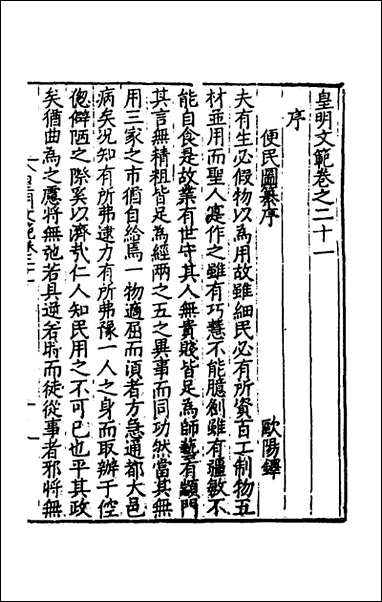 皇明文範卷之二十一
序
便民圖纂序 歐陽鐸
夫有生必假物以為用故雖細民必有所資百工制物五
材並用而聖人寔作之雖有巧慧不能臆創雖有彊敏不
能自食是故業有世守其人無貴賤皆足為師藝有顓門
其言無精粗皆足為經兩之五之異事而同功然當其無
用三家之市猶自給焉一物適屈而湏者方急通都大邑
病矣況知有所弗逮力有所弗豫一人之身而取辦于倥
偬僻陋之際奚以濟㢤仁人知民用之不可已也平其政
矣猶曲為之慮將無弛若具逆若時而徒從事者邪將無
皇明文範卷二十一